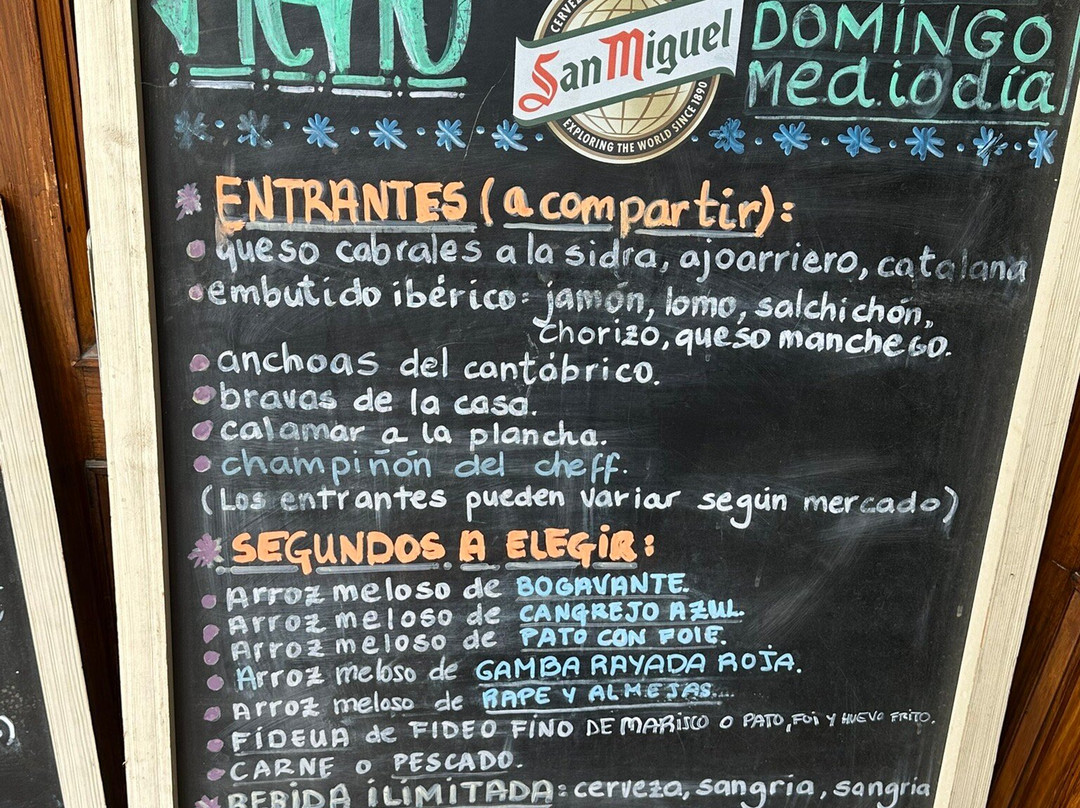 MENÚ
CERVE
San Miguel
EXPLORING THE WORLD SINCE 1890
DOMINGO
Mediodía
ENTRANTES (a compartir):
queso cabrales a la sidra, ajoarriero, catalana
embutido ibérico: jamón, lomo, salchichón,
chorizo, queso manchego.
anchoas del cantábrico.
bravas de la casa.
calamar a la plancha.
champiñón del cheff.
(Los entrantes pueden variar según mercado)
SEGUNDOS A ELEGIR:
Arroz meloso de BOGAVANTE.
Arroz meloso de CANGREJO AZUL.
Arroz meloso de PATO CON FOIE.
Arroz meloso de GAMBA RAYADA ROJA.
Arroz meloso de RAPE Y ALMEJAS...
FIDEUA de FIDEO FINO DE MARISCO O PATO, FOI Y HUEVO FRITO.
CARNE O PESCADO.
BEBIDA ILIMITADA: cerveza, sangria, sangria